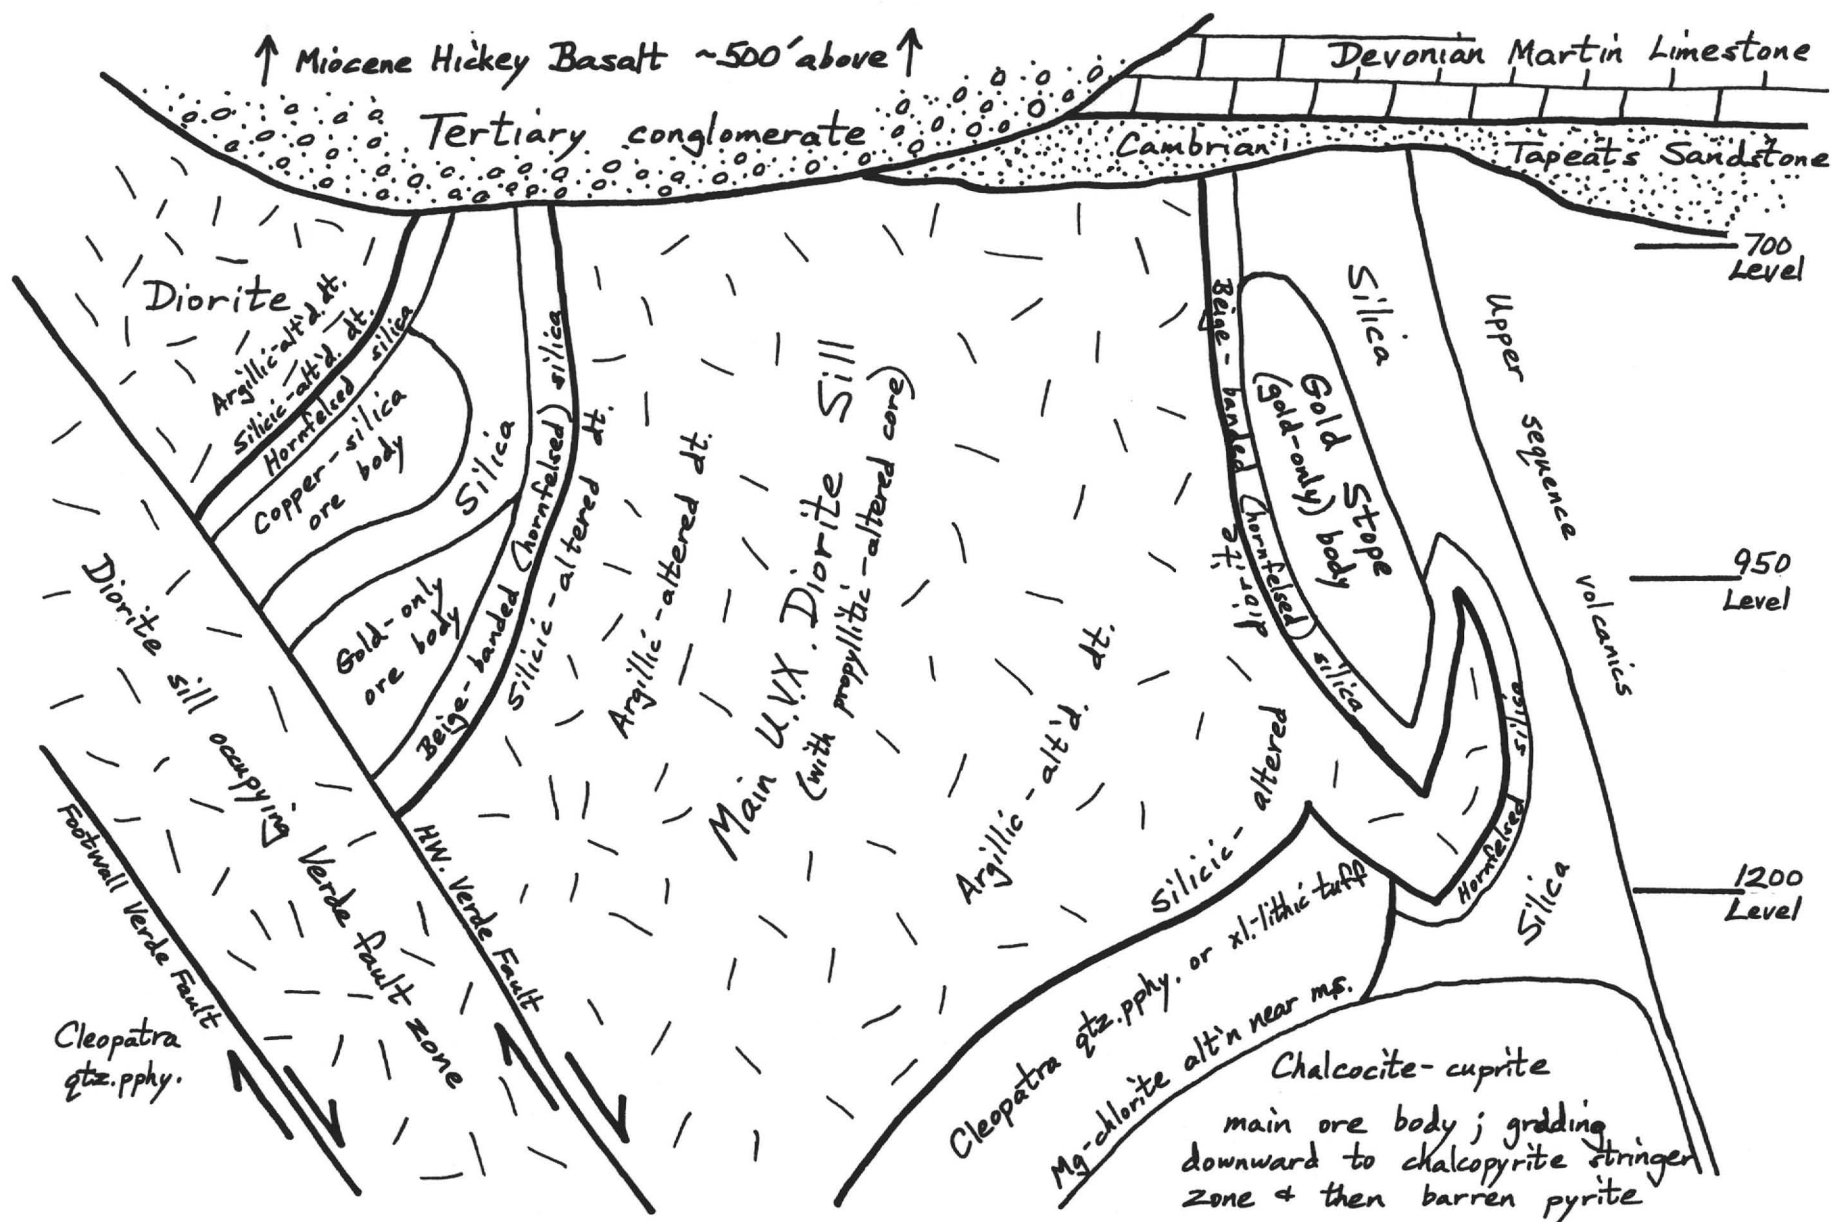 ↑ Miocene Hickey Basalt ~500' above ↑
Devonian Martin Limestone
Tertiary conglomerate
Cambrian
Tapeats Sandstone
700
Level
Diorite
Argillic-alt'd. dt.
Silicic-alt'd. dt.
Hornfelsed silica
Copper-silica
ore body
Silica
Gold-only
ore body
Beige-banded (hornfelsed) silica
Silicic-altered dt.
Argillic-altered dt.
Main U.V.X. Diorite Sill
(with propyllitic-altered core)
Argillic-alt'd. dt.
Silicic-altered
diorite
Beige-banded (hornfelsed) silica
Gold Stope
(gold-only) body
Silica
Upper sequence volcanics
950
Level
Hornfelsed silica
1200
Level
Silica
Diorite sill occupying Verde fault zone
Footwall Verde Fault
HW. Verde Fault
Cleopatra
qtz.pphy.
Cleopatra qtz.pphy. or xl.-lithic tuff
Mg-chlorite alt'n near m.s.
Chalcocite-cuprite
main ore body; grading
downward to chalcopyrite stringer
zone & then barren pyrite